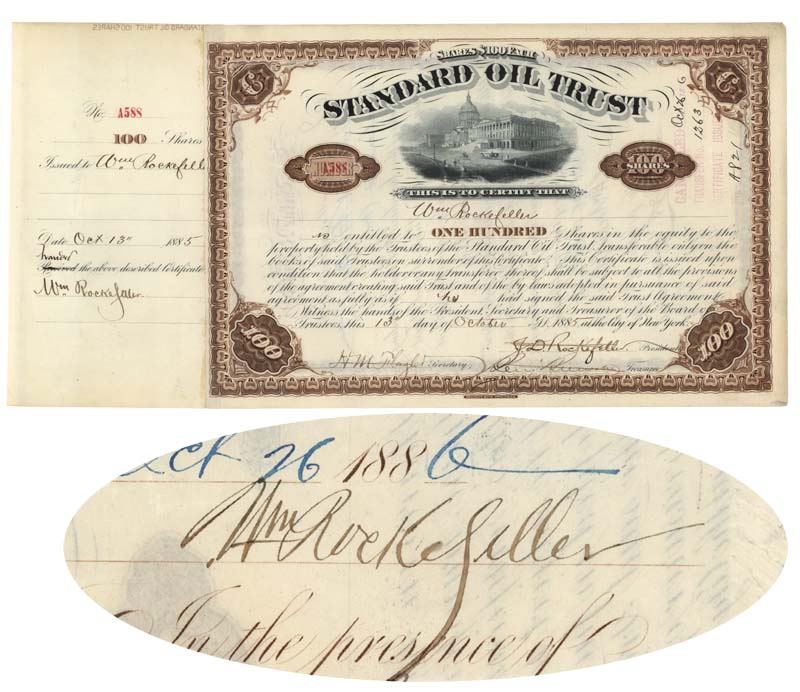 STANDARD OIL TRUST 100 SHARES
No. A588
100 Shares
Issued to Wm Rockefeller
Date Oct 13th 1885
the above described Certificate
Wm Rockefeller
SHARES $100 EACH
STANDARD OIL TRUST
A588
100 SHARES
THIS IS TO CERTIFY THAT
Wm Rockefeller
is entitled to ONE HUNDRED Shares in the equity to the
property held by the Trustees of the Standard Oil Trust, transferable only on the
books of said Trustees on surrender of this Certificate. This Certificate is issued upon
condition that the holder or any transferee thereof shall be subject to all the provisions
of the agreement creating said Trust and of the by laws adopted in pursuance of said
agreement as fully as if he had signed the said Trust Agreement.
Witness the hands of the President Secretary and Treasurer of the Board of
Trustees this 13th day of October AD. 1885 at the City of New York.
J.D. Rockefeller President
H M Flagler Secretary
Treasurer
100
100
Oct 26
1263
A821
Oct 26 1886
Wm Rockefeller
In the presence of